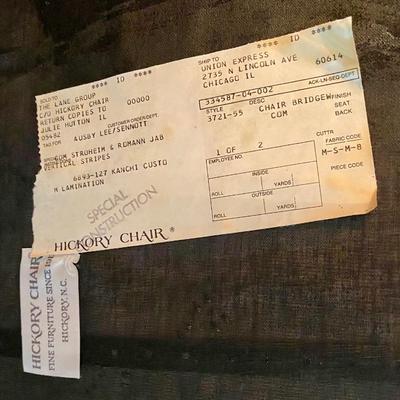 **** ID ****
SOLD TO
THE LANE GROUP
C/O HICKORY CHAIR
RETURN COPIES TO 00000
JULIE HUTTON IL
05482 CUSTOMER-ORDER-DEPT.
TAG FOR AUSBY LEE/SENNOTT
SPECIAL
COM STROHEIM & ROMANN JAB
VERTICAL STRIPES
6893-127 KANCHI CUSTO
M LAMINATION
SPECIAL
CONSTRUCTION
HICKORY CHAIR®
**** ID ****
SHIP TO
UNION EXPRESS
2735 N LINCOLN AVE
CHICAGO IL 60614
ACK-LN-SEQ-DEPT
334587-04-002
STYLE DESC FINISH
3721-55 CHAIR BRIDGEW SEAT
COM BACK
1 OF 2
CUTTR
EMPLOYEE NO.
FABRIC CODE
M-S-M-8
INSIDE
PIECE CODE
ROLL YARDS
OUTSIDE
ROLL YARDS
HICKORY CHAIR
FINE FURNITURE SINCE
HICKORY, N.C.